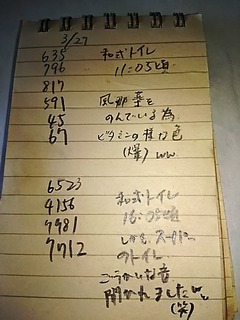 3/27
635 和式トイレ
796 11:05頃
817
591 風邪薬を
45 のんでいる為
67 ビタミンの様な色
(爆)ww
6523 和式トイレ
4156 16:05頃
7981 しかも、スーパー
7712 のトイレ
ごうかいな音
聞かれましたw
(笑)